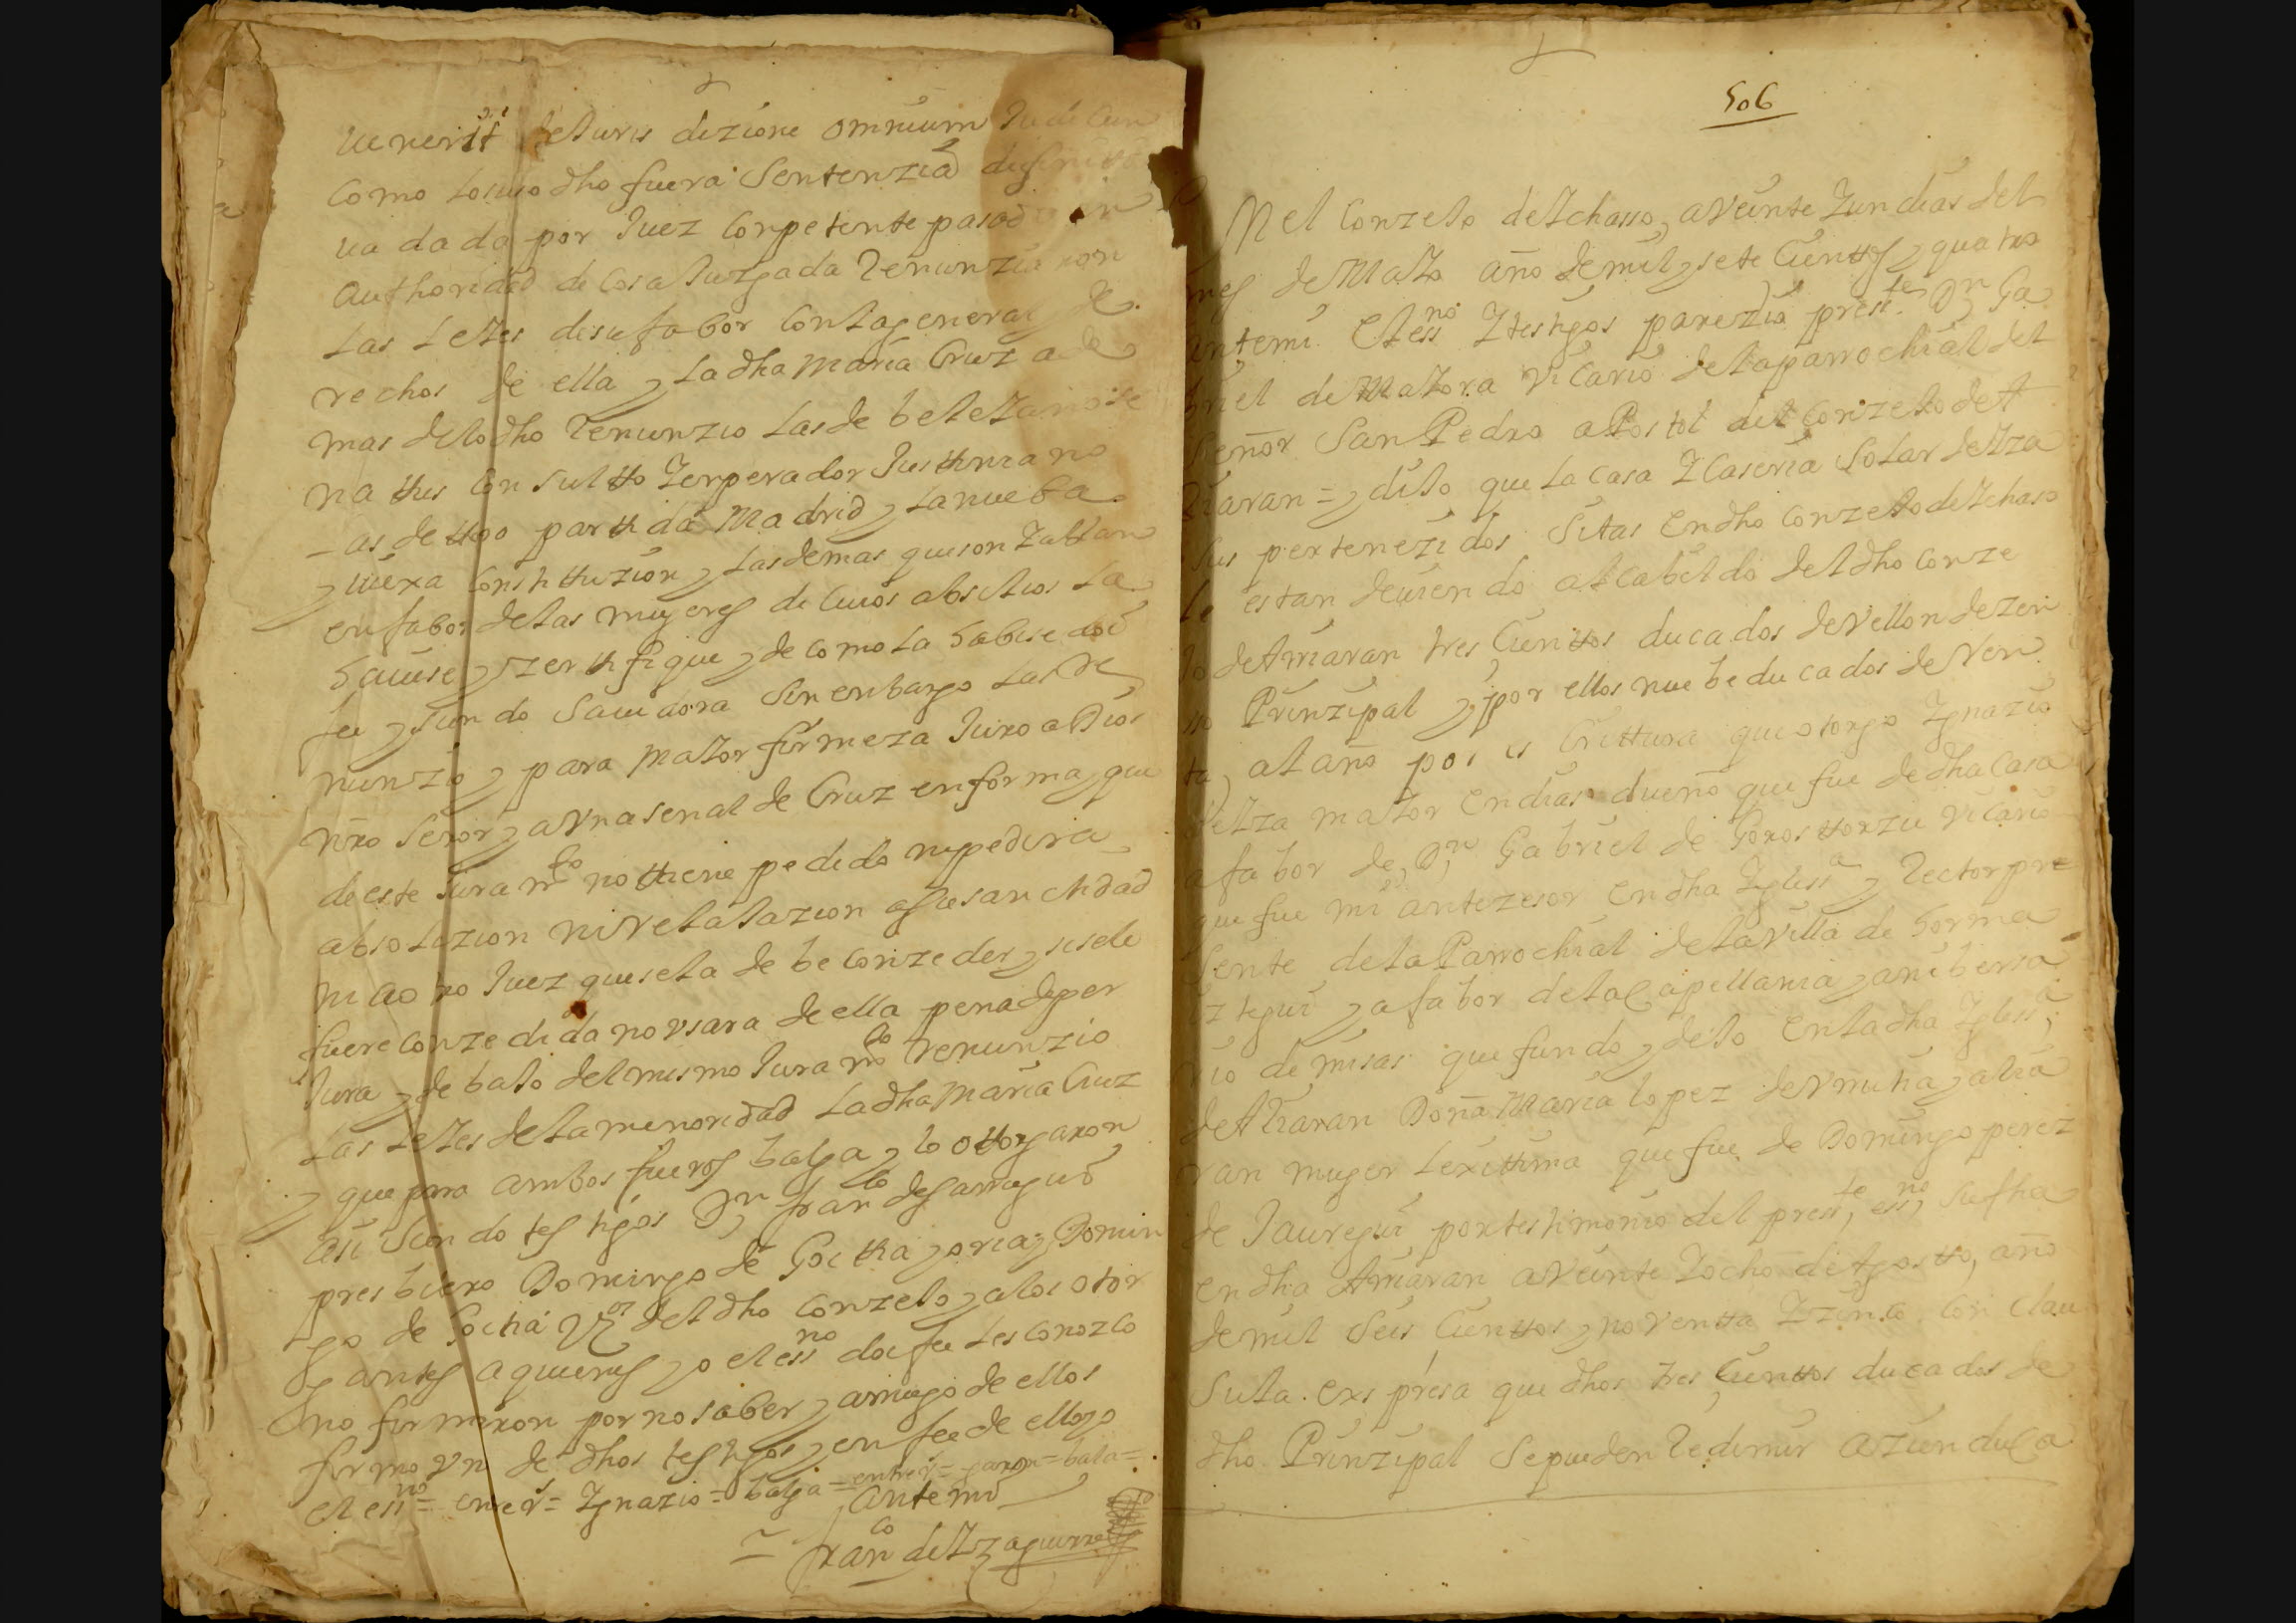 uenerit de Juris dizione omnium Judicun
como losuso dho fuera Sentenzia difiniti
ua dada por Juez Conpetente pasada in
authoridad de Cosa Juzgada Renunziaron
Las Leyes desufabor Conlageneral de
rechos de ella, y Ladha Maria Cruz ade
mas delodho Renunzio Lasde beleiano se
natus Consultto Zenperador Justiniano
_ as de ttoro partida Madrid, y Lanueba
y viexa Constituzion, y Lasdemas queson Zablan
enfabor delas mugeres de Cuios absilios La
hauise, y zertifique, y de como La habise doi
fee, y siendo Sauidora Sinenbargo Las Re
nunzio, y para Maior firmeza Juro a Dios
nro Señor, y aVnasenal de Cruz enforma, y que
deeste Juramto no ttiene pedido nipedira
absoluzion niRelaxazion a suSanctidad
ni ao tro Juez quesela de be Conzeder, y sisele
fuere Conzedida novsara de ella pena deper
Jura, y de baxo delmismo Juramto Renunzio
Las Leyes dela menoridad LadhaMaria Cruz
y que para ambos fueros balga, y lo ottorgaron
asi Siendo testigos Dn franco de
presbitero Domingo de Goitia, y Domin
go de Goitia Vos deldho Conzeio, y alos otor
gantes aquienes, yo el essno doi fee Les Conozco
no firmaron por no saber, y aruego de ellos
firmo Vn de dhos testigos, y en fee de ello yo
el essno = enter = Ygnazio = balga = entrer = garon = bala =
Antemi
franco de Yzaguirre
506
En el Conzeio de Ychasso, aVeinte Zun dias del
mes de Maio año de mil, y sete Cientos, y quatro
antemi el essno Ztestigos parezio preste Dn Ga
briel de Maiora Vicario de laparrochial del
Señor San Pedro apostol del Conzeio de A
riaran = y dixo que La casa ZCaseria Solar de Yza
sus pertenezidos Sitas Endho Conzeio de Ychaso
le estan deuiendo alcabildo deldho Conze
io de Ariaran tres Cientos ducados de Vellon dezen
so Prinzipal, y por ellos nuebe ducados de Ren
ta, al año por es Crittura que otorgo Ygnazio
de Yza maior En dias dueño que fue de dha Casa
afabor de Dn Gabriel de Gorostorzu Vicario
que fue mi antezesor Endha Yglessa, y Rector pre
sente dela Parrochial dela Villa de horma
iztegui, y afabor dela Capellania, y aniberssa
rio de misas que fundo, y dexo Enladha Yglessa
de Ariaran Doña Maria lopez de
ran muger Lexittima que fue de Domingo perez
de Jauregui portestimonio del presste essno Sufha
En dha Ariaran aVeinte Zocho de Agosto, año
de mil Seis Cienttos, y noventta Zzinco Con Clau
sula expresa que dhos tres Cienttos ducados de
dho Prinzipal Sepueden Redimir azien duca